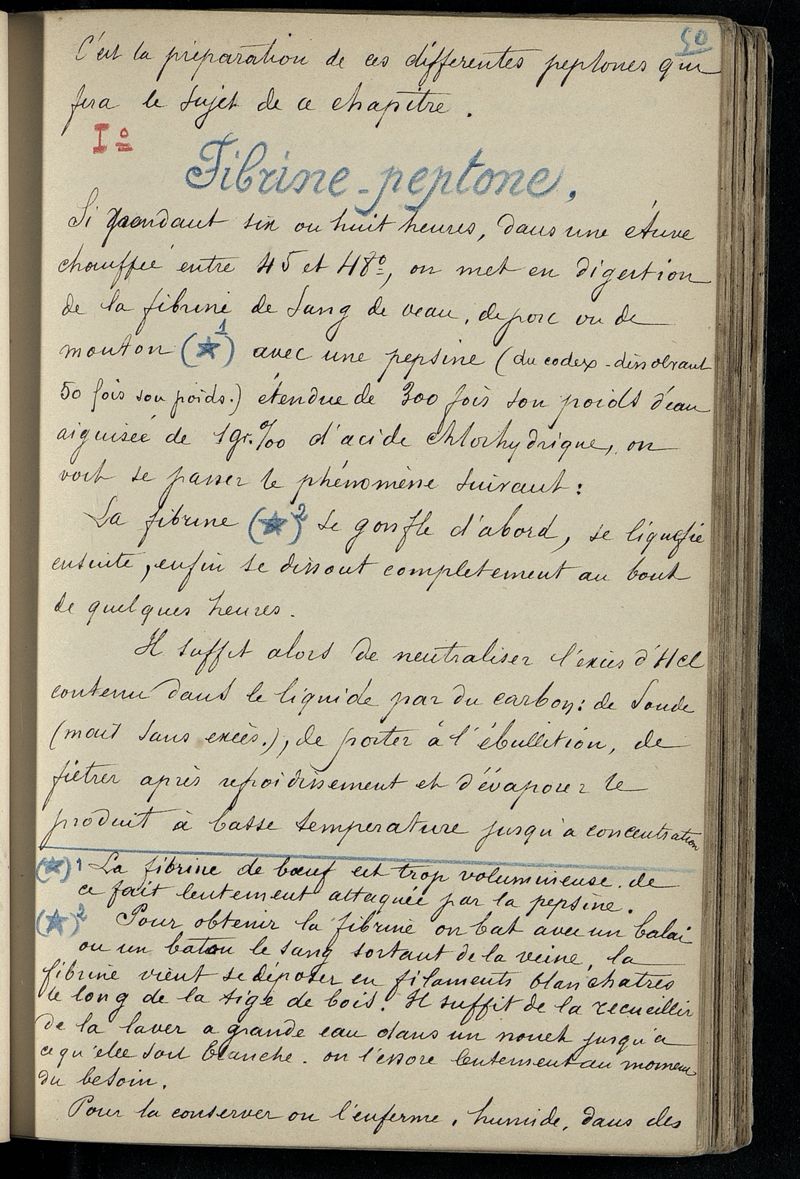 50
C'est la préparation de ces différentes peptones qui
fera le sujet de ce chapitre.
Iº
Fibrine-peptone.
Si pendant six ou huit heures, dans une étuve
chauffée entre 45 et 48º, on met en digestion
de la fibrine de sang de veau, de porc ou de
mouton (★)1 avec une pepsine (du codex - dissolvant
50 fois son poids.) étendue de 300 fois son poids d'eau
aiguisée de 1gr.‰ d'acide chlorhydrique, on
voit se passer le phénomène suivant:
La fibrine (★)2 se gonfle d'abord, se liquefie
ensuite, enfin se dissout completement au bout
de quelques heures.
Il suffit alors de neutraliser l'excès d'Hcl
contenu dans le liquide par du carbon: de soude
(mais sans excès.), de porter à l'ébullition, de
filtrer après refroidissement et d'évaporer le
produit à basse temperature jusqu'a concentration
(★)1 La fibrine de bœuf est trop volumineuse. de
ce fait lentement attaquée par la pepsine.
(★)2 Pour obtenir la fibrine on bat avec un balai
ou un baton le sang sortant de la veine, la
fibrine vient se déposer en filaments blanchatres
le long de la tige de bois. Il suffit de la recueillir
de la laver a grande eau dans un nouet jusqu'a
ce qu'elle soit blanche. on l'essore lentement au moment
du besoin.
Pour la conserver on l'enferme, humide, dans des